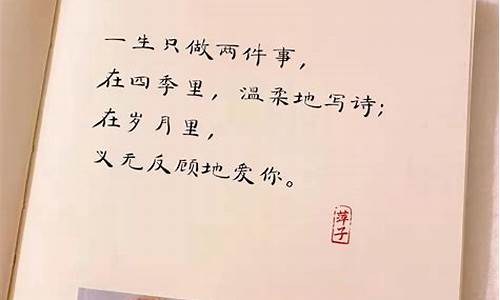 一生只做两件事，
在四季里，温柔地写诗；
在岁月里，
义无反顾地爱你。
萍子